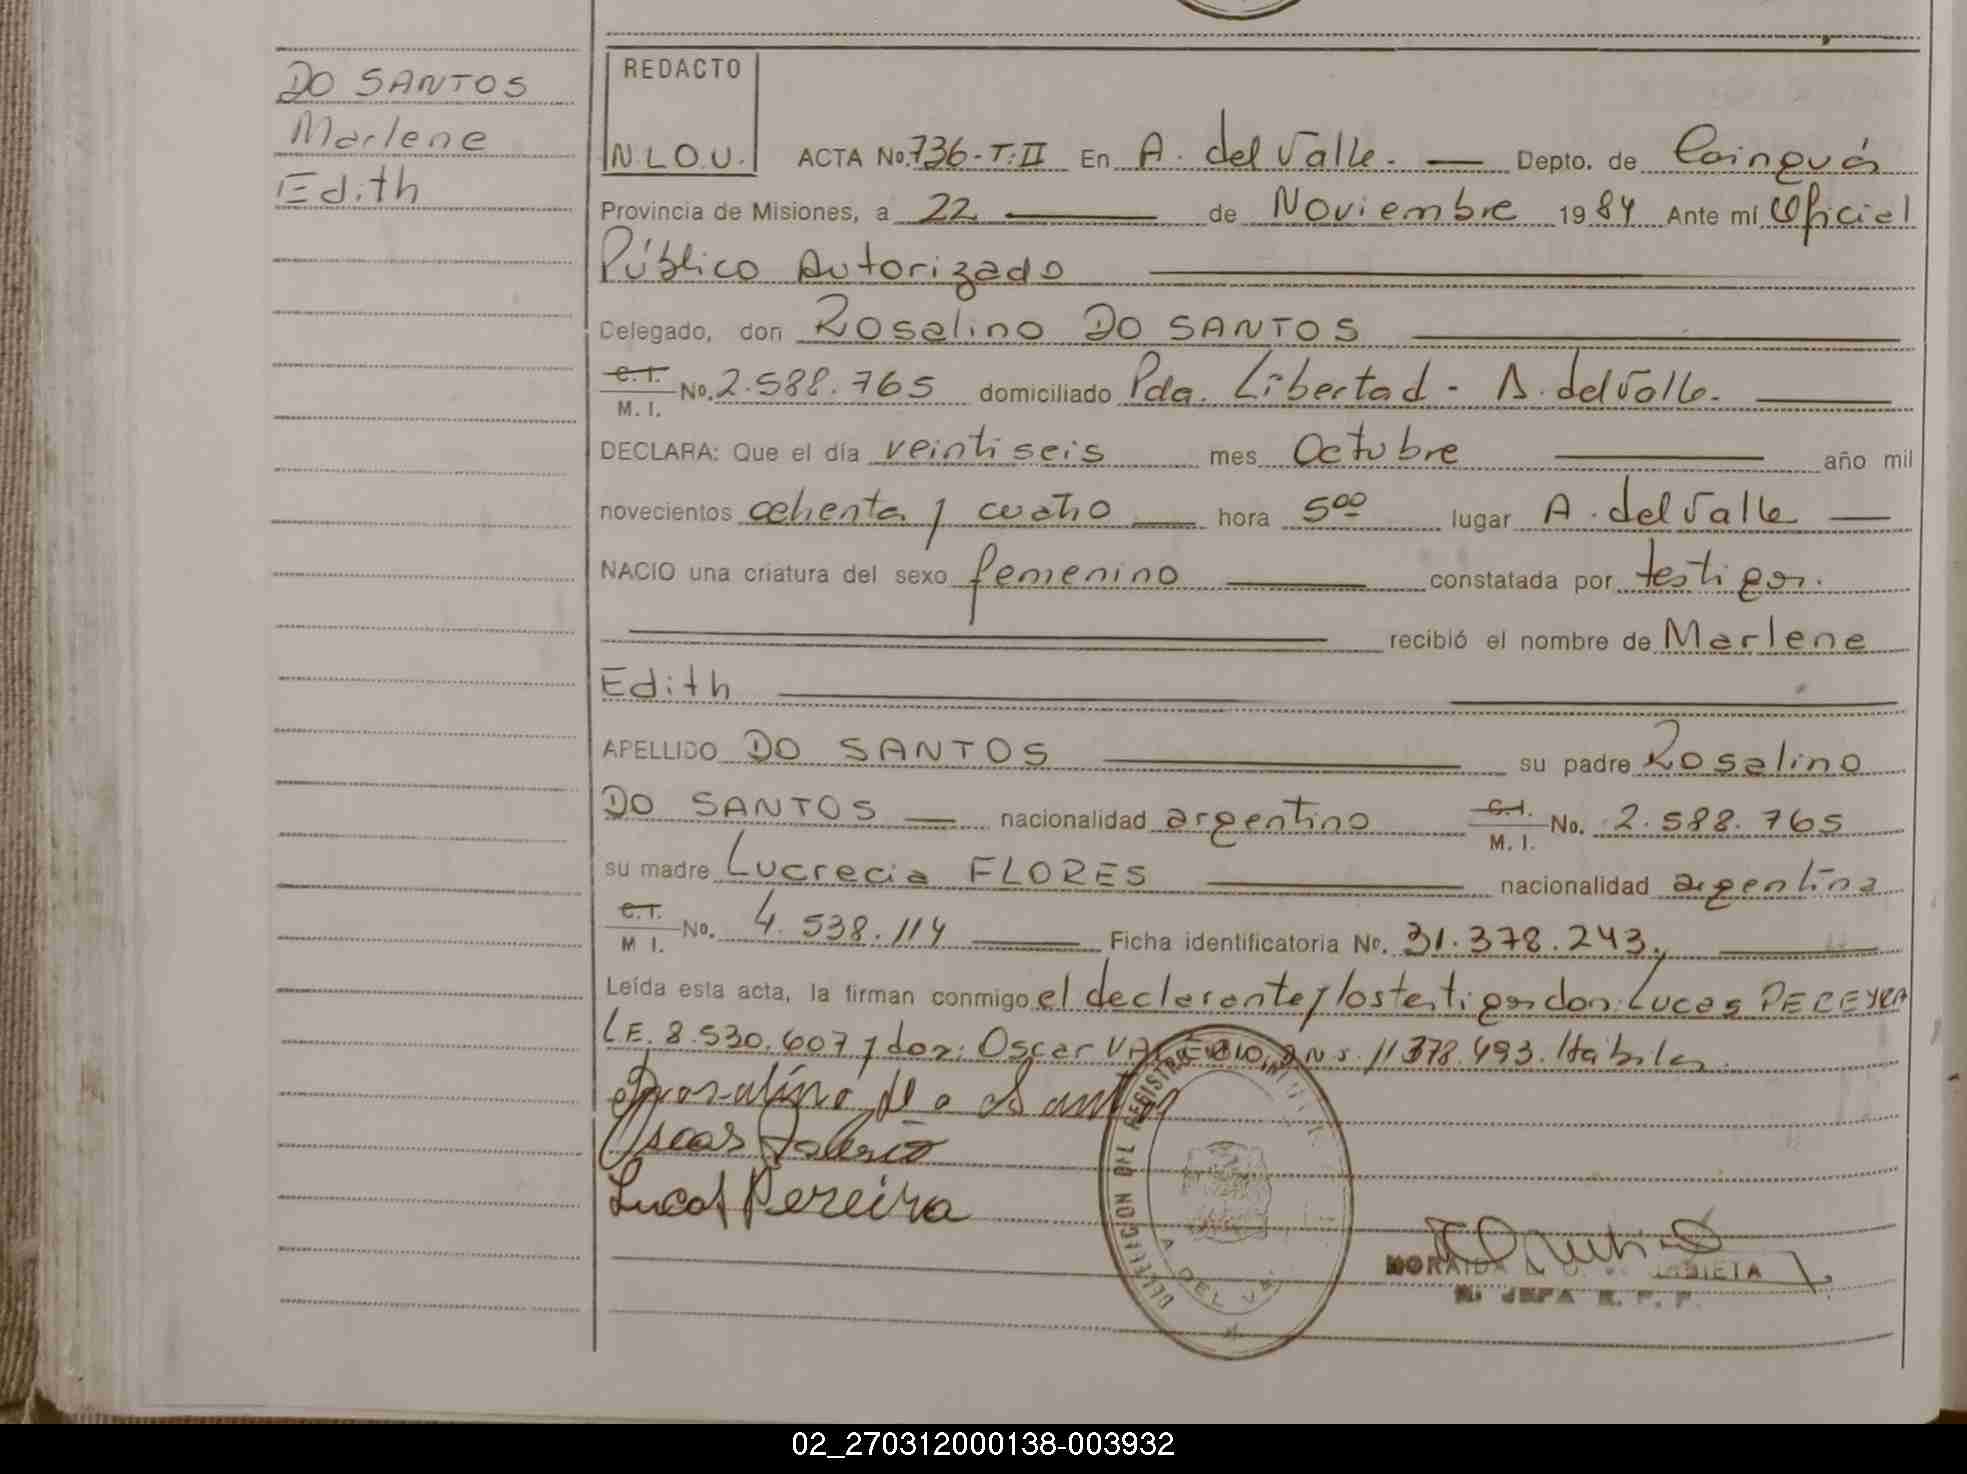 DO SANTOS
Marlene
Edith
REDACTO
N.L.O.U. ACTA No. 736-T:II En A. del Valle. Depto. de Cainguás
Provincia de Misiones, a 22 de Noviembre 1984 Ante mí Oficial
Público Autorizado
Delegado, don Rosalino DO SANTOS
C.I. M. I. No. 2.588.765 domiciliado Pda. Libertad - A. del Valle.
DECLARA: Que el día veintiseis mes Octubre año mil
novecientos ochenta y cuatro hora 5oo lugar A. del Valle
NACIO una criatura del sexo femenino constatada por testigos.
recibió el nombre de Marlene
Edith
APELLIDO DO SANTOS su padre Rosalino
DO SANTOS nacionalidad argentino C.I. M. I. No. 2.588.765
su madre Lucrecia FLORES nacionalidad argentina
C.I. M I. No. 4.538.114 Ficha identificatoria No. 31.378.243.
Leída esta acta, la firman conmigo el declarante y los testigos don: Lucas PEREYRA
L.E. 8.530.607 y don: Oscar VALERIO, 11378.493. Hábiles
Rosalino do Santos
Oscar Valerio
Lucas Pereira
DELEGACION DEL REGISTRO
A. DEL VA
MORAIDA
JEFA R. P. P.
02_270312000138-003932